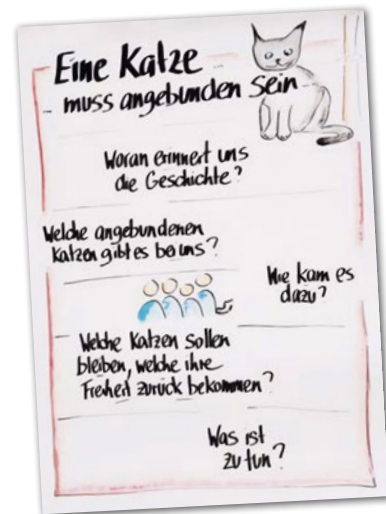 Eine Katze
muss angebunden sein
Woran erinnert uns
die Geschichte?
Welche angebundenen
Katzen gibt es bei uns?
Wie kam es
dazu?
Welche Katzen sollen
bleiben, welche ihre
Freiheit zurück bekommen?
Was ist
zu tun?